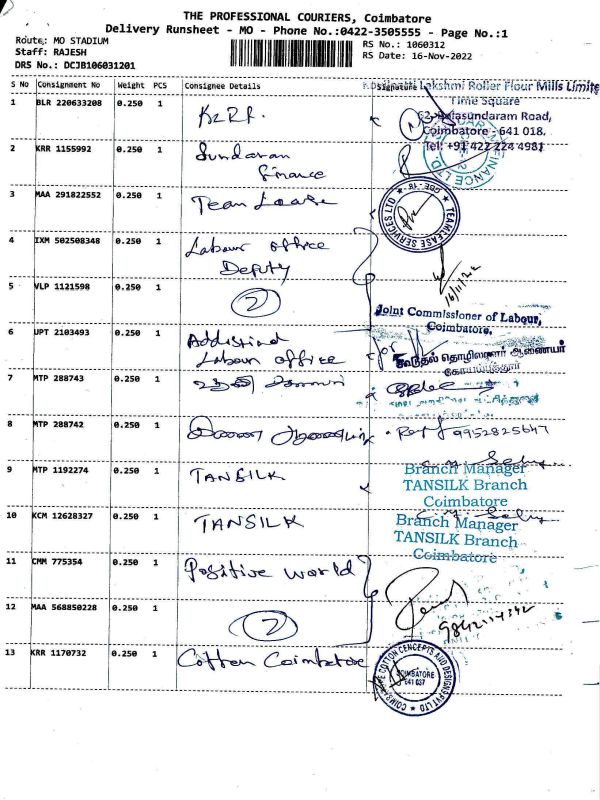 THE PROFESSIONAL COURIERS, Coimbatore
Delivery Runsheet - MO - Phone No.:0422-3505555 - Page No.:1
Route: MO STADIUM
Staff: RAJESH
DRS No.: DCJB106031201
RS No.: 1060312
RS Date: 16-Nov-2022
S No Consignment No Weight PCS Consignee Details Signature
Lakshmi Roller Flour Mills Limite
Time Square
62, Rajasundaram Road,
Coimbatore - 641 018.
Tel: +91 422 224 4981
1 BLR 220633208 0.250 1
2 KRR 1155992 0.250 1 Sundaram
Finance
FINANCE LTD
3 MAA 291822552 0.250 1 Team Lease
TEAMLEASE SERVICES LTD ★ CBE-18 ★
4 IXM 502508348 0.250 1 Labour office
Deputy
16/11/22
5 VLP 1121598 0.250 1 2
Joint Commissioner of Labour,
Coimbatore.
6 UPT 2103493 0.250 1 Labour office
for
கூடுதல் தொழிலாளர் ஆணையர்
கோயம்புத்தூர்
7 MTP 288743 0.250 1
8 MTP 288742 0.250 1 9952825647
9 MTP 1192274 0.250 1 TANSILK
Branch Manager
TANSILK Branch
Coimbatore
10 KCM 12628327 0.250 1 TANSILK
Branch Manager
TANSILK Branch
Coimbatore
11 CMM 775354 0.250 1 Positive world
12 MAA 568850228 0.250 1 2
13 KRR 1170732 0.250 1 Cotton Coimbatore
COTTON CONCEPTS AND DESIGNS PVT LTD
COIMBATORE
641 037